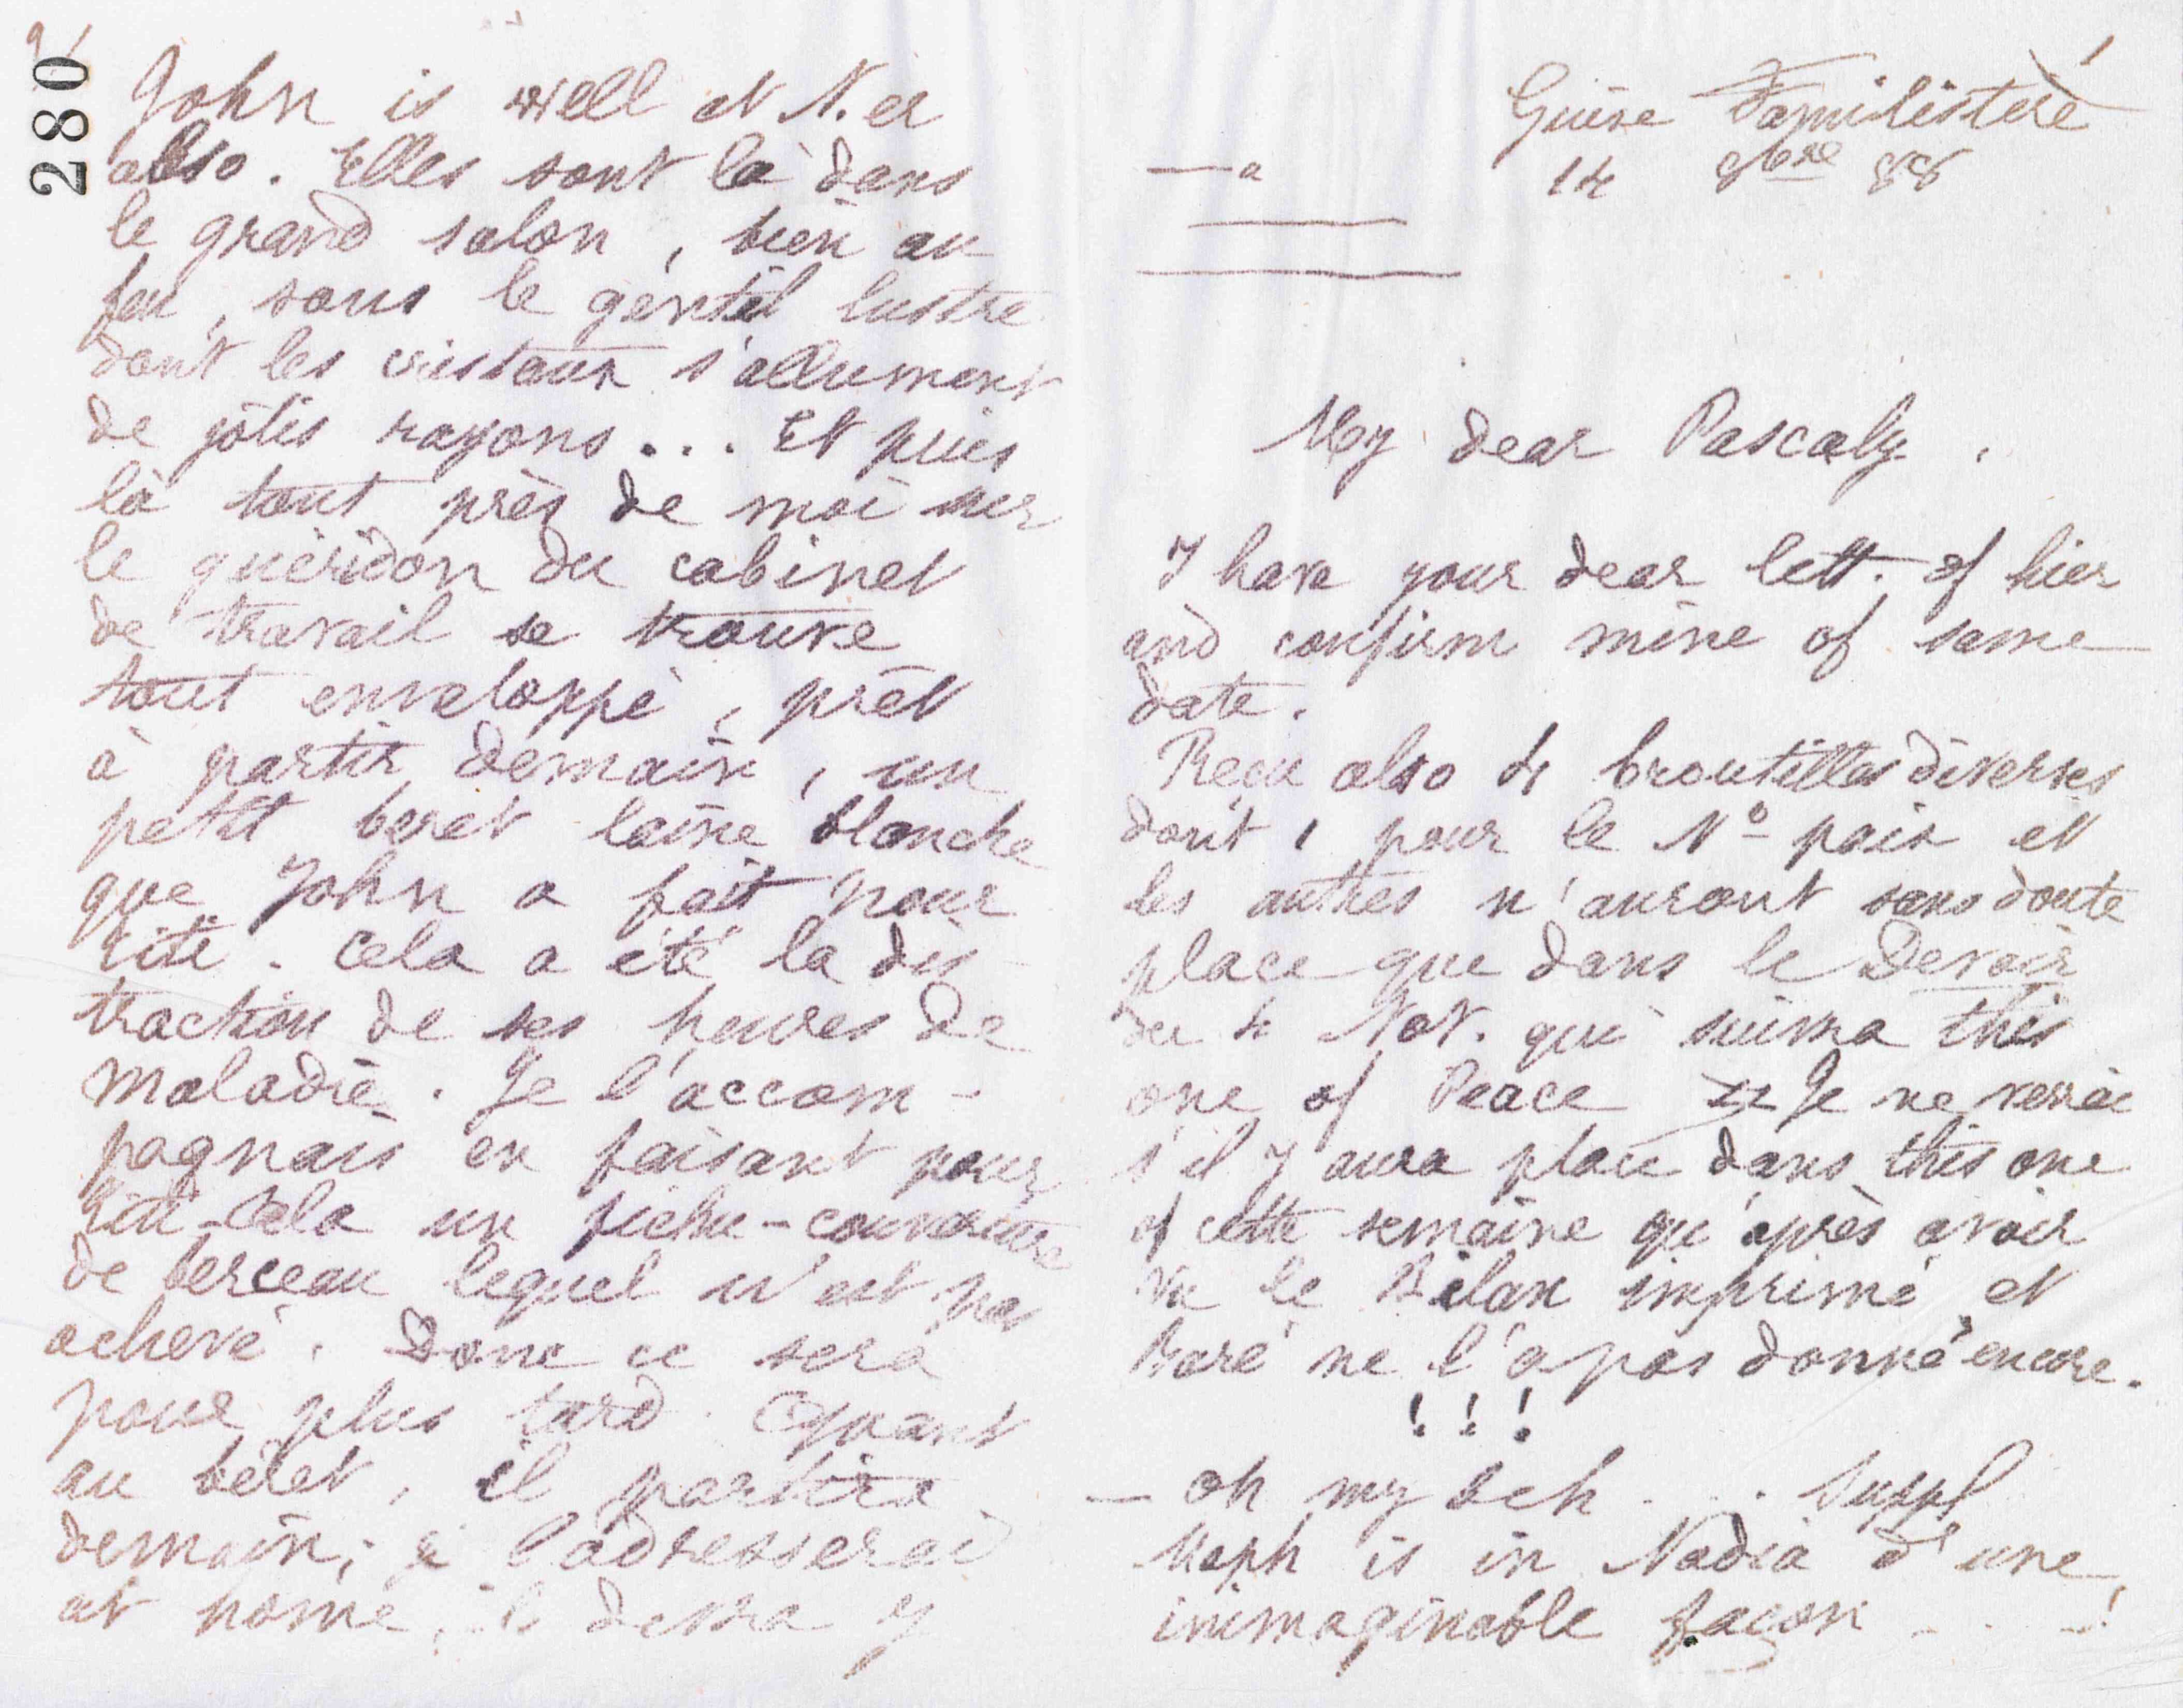 280
John is well et N. er
also. Elles sont là dans
le grand salon, bien au
feu, sous le gentil lustre
dont les cristaux s'allument
de jolis rayons... Et puis
là tout près de moi sur
le guéridon du cabinet
de travail se trouve
tout enveloppé, prêt
à partir demain, un
petit beret laine blanche
que John a fait pour
titi. Cela a été la dis-
traction de ses heures de
maladie. Je l'accom-
pagnais en faisant pour
titi-Cela un fichu-couverture
de berceau lequel n'est pas
achevé. Donc ce sera
pour plus tard. Quant
au béret, il partira
demain; je l'adresserai
at home, il devra y
Guise Familistère
14 8bre 88
—a
My dear Pascaly.
I have your dear lett. of hier
and confirm mine of same
date.
Reçu also 4 broutilles diverses
dont 1 pour le No paix et
les autres n'auront sans doute
place que dans le Devoir
du 4 Nov. qui suivra this
one of Peace Je ne verrai
s'il y aura place dans this one
of cette semaine qu'après avoir
vu le Bilan imprimé et
Baré ne l'a pas donné encore.
!!!
— oh my bch... Suppl
Moph is in Nadia d'une
inimaginable façon...!